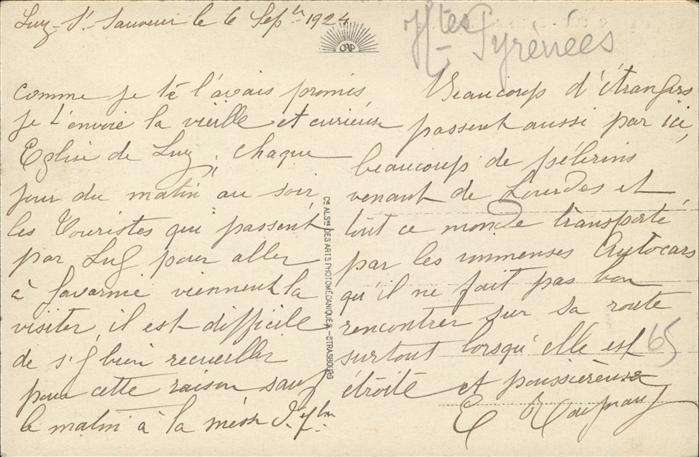 Luz-St-Sauveur le 6 Septre 1924
Htes Pyrénées
CAP
comme je te l'avais promis
je t'envoie la vieille et curieuse
Eglise de Luz, chaque
jour du matin au soir
les Touristes qui passent
par Luz pour aller
à Gavarnie viennent la
visiter il est difficile
de s'y bien recueillir
pour cette raison sauf
le matin à la messe
Beaucoup d'étrangers
passent aussi par ici,
beaucoup de pélerins
venant de Lourdes et
tout ce monde transporté
par les immenses Autocars
qu'il ne fait pas bon
rencontrer sur sa route
surtout lorsqu'elle est
étroite et poussièreuse
65
Cie ALSne DES ARTS PHOTOMÉCANIQUES - STRASBOURG